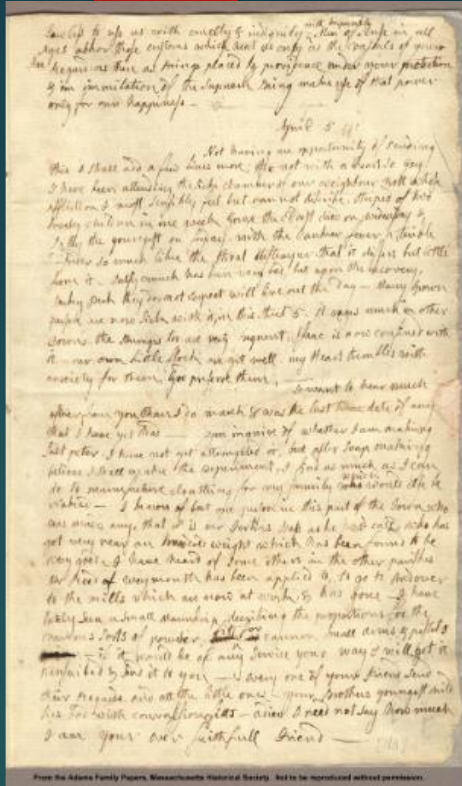 Lawless to use us with cruelty & indignity with impunity. Men of Sense in all
Ages abhor those customs which treat us only as the vassals of your
Sex. Regard us then as Beings placed by providence under your protection
& in immitation of the Supreem Being make use of that power
only for our happiness —
April 5
Not having an opportunity of sending
this I shall add a few lines more; tho not with a heart so gay.
I have been attending the sick chamber of our neighbour Trott whose
affliction I most sensibly feel but can not discribe, striped of two
lovely children in one week. George the Eldest died on wedensday &
Billy the youngest on fryday, with the Canker fever, a terible
disorder so much like the throat distemper, that it differs but little
from it. Betsy Cranch has been very bad, but upon the recovery.
Becky Peck they do not expect will live out the day. Many grown
persons are now sick with it, in this street 5. It rages much in other
Towns. The Mumps too are very frequent. Isaac is now confined with
it. our own little flock are yet well. my Heart trembles with
anxiety for them. God preserve them.
I want to hear much
oftener from you than I do. March 8 was the last date of any
that I have yet had. — you inquire of whether I am making
Salt peter. I have not yet attempted it, but after Soap making
believe I shall make the experiment. I find as much as I can
do to manufacture cloathing for my family which would else be
Naked — I know of but one person in this part of the Town who
has made any, that is Mr Tertias Bass as he is calld who has
got very near an hundred weight which has been found to be
very good. I have heard of some others in the other parishes
Mr Reed of Weymouth has been applied to, to go to Andover
to the mills which are now at work, & has gone — I have
lately seen a small Manuscrip describing the proportions for the
various sorts of powder, cannon, small arms & pistols
if it would be of any Service your way I will get it
transcribed & send it to you — every one of your Friend send
their Regards, and all the little ones — your Brothers youngest child
lies bad with convulsion fitts — adieu I need not say how much
I am your ever faithfull Friend —
From the Adams Family Papers, Massachusetts Historical Society. Not to be reproduced without permission.